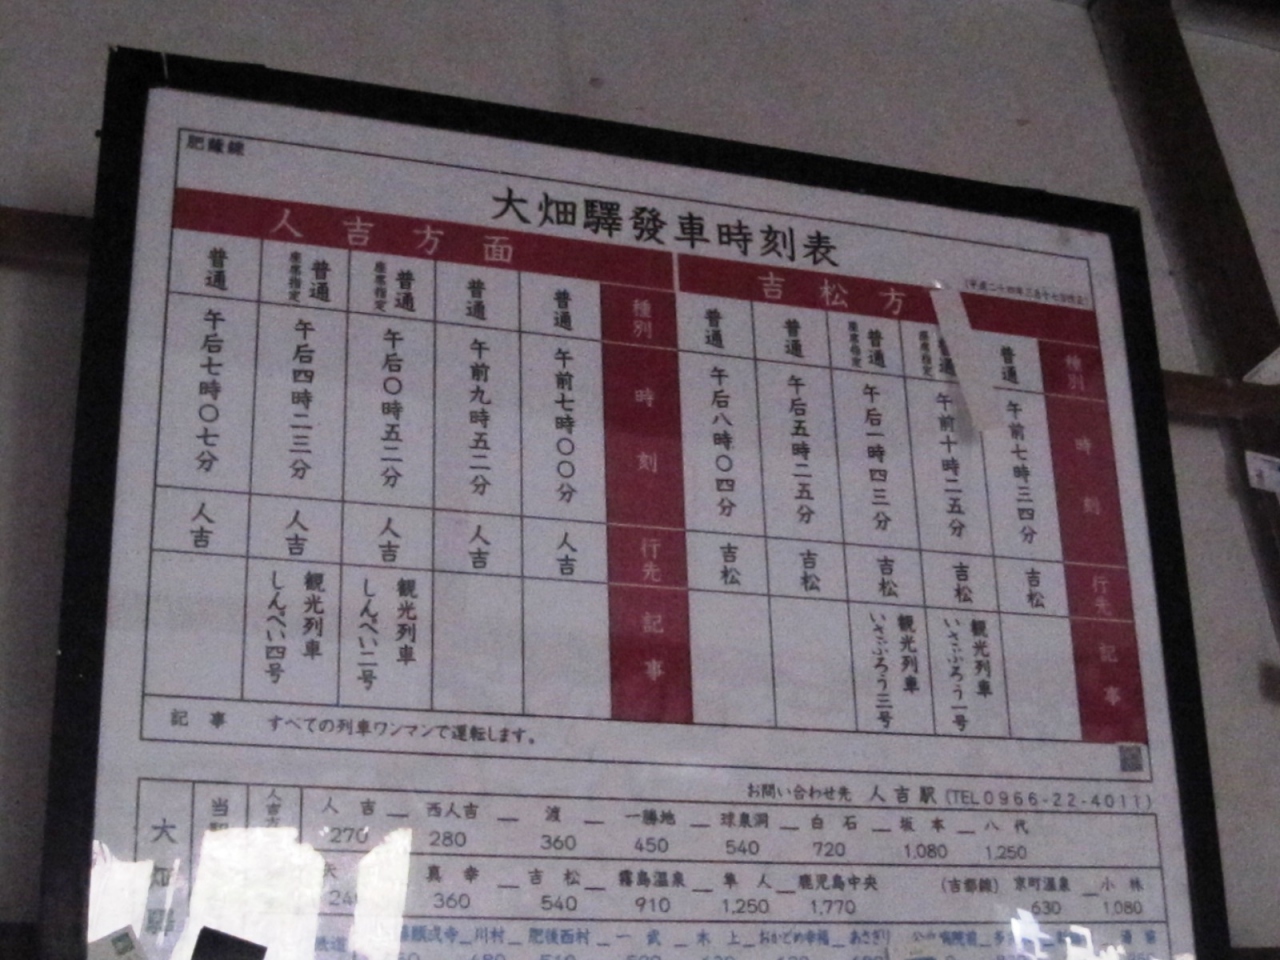 肥薩線
大畑驛發車時刻表
(平成二十四年三月十七日改正)
吉松方
種別 時刻 行先 記事
普通 午前七時三四分 吉松
普通 座席指定 午前十時二五分 吉松 観光列車 いさぶろう一号
普通 座席指定 午后一時四三分 吉松 観光列車 いさぶろう三号
普通 午后五時二五分 吉松
普通 午后八時〇四分 吉松
人吉方面
種別 時刻 行先 記事
普通 午前七時〇〇分 人吉
普通 午前九時五二分 人吉
普通 座席指定 午后〇時五二分 人吉 観光列車 しんぺい二号
普通 座席指定 午后四時二三分 人吉 観光列車 しんぺい四号
普通 午后七時〇七分 人吉
記事 すべての列車ワンマンで運転します。
お問い合わせ先 人吉駅 (TEL0966-22-4011)
大畑驛
人吉 西人吉 渡 一勝地 球泉洞 白石 坂本 八代
270 280 360 450 540 720 1,080 1,250
真幸 吉松 霧島温泉 隼人 鹿児島中央 (吉都線) 京町温泉 小林
360 540 910 1,250 1,770 630 1,080
川村 肥後西村 一武 木上 おかどめ幸福 あさぎり